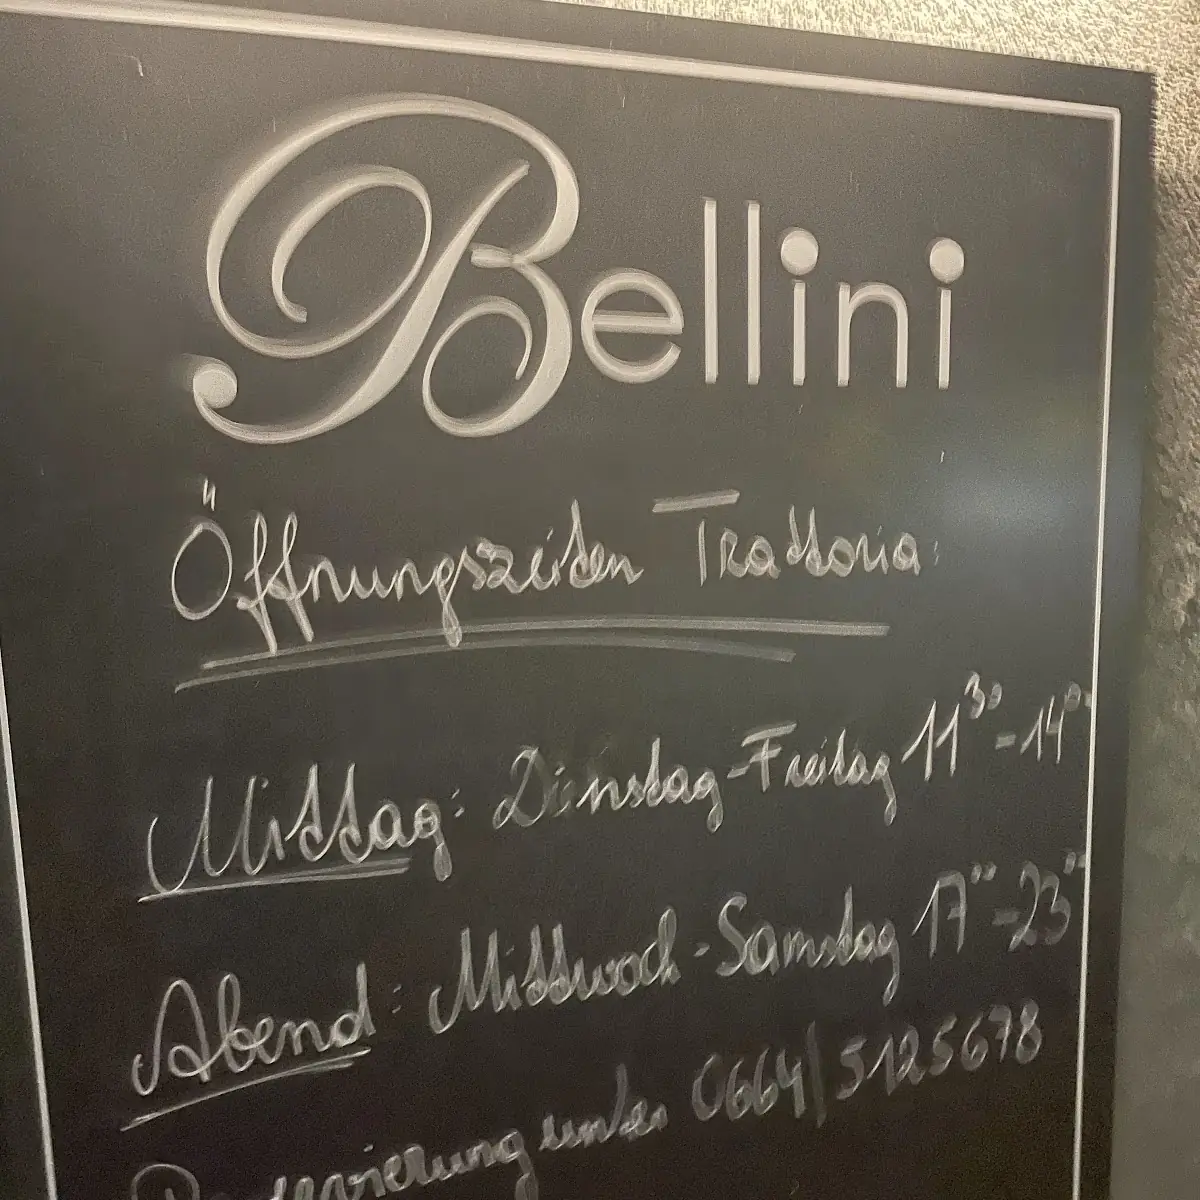 Bellini
Öffnungszeiten Trattoria:
Mittag: Dienstag-Freitag 11³⁰-14⁰⁰
Abend: Mittwoch-Samstag 17"-23"
Reservierung unter 0664/5125678